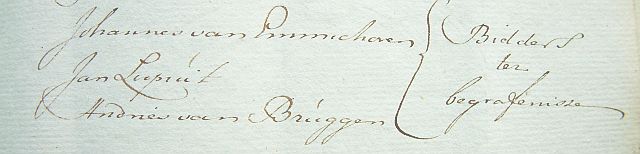 Johannes van Emmichoven
Jan Lupuit
Andries van Bruggen
Bidders
ter
begrafenisse